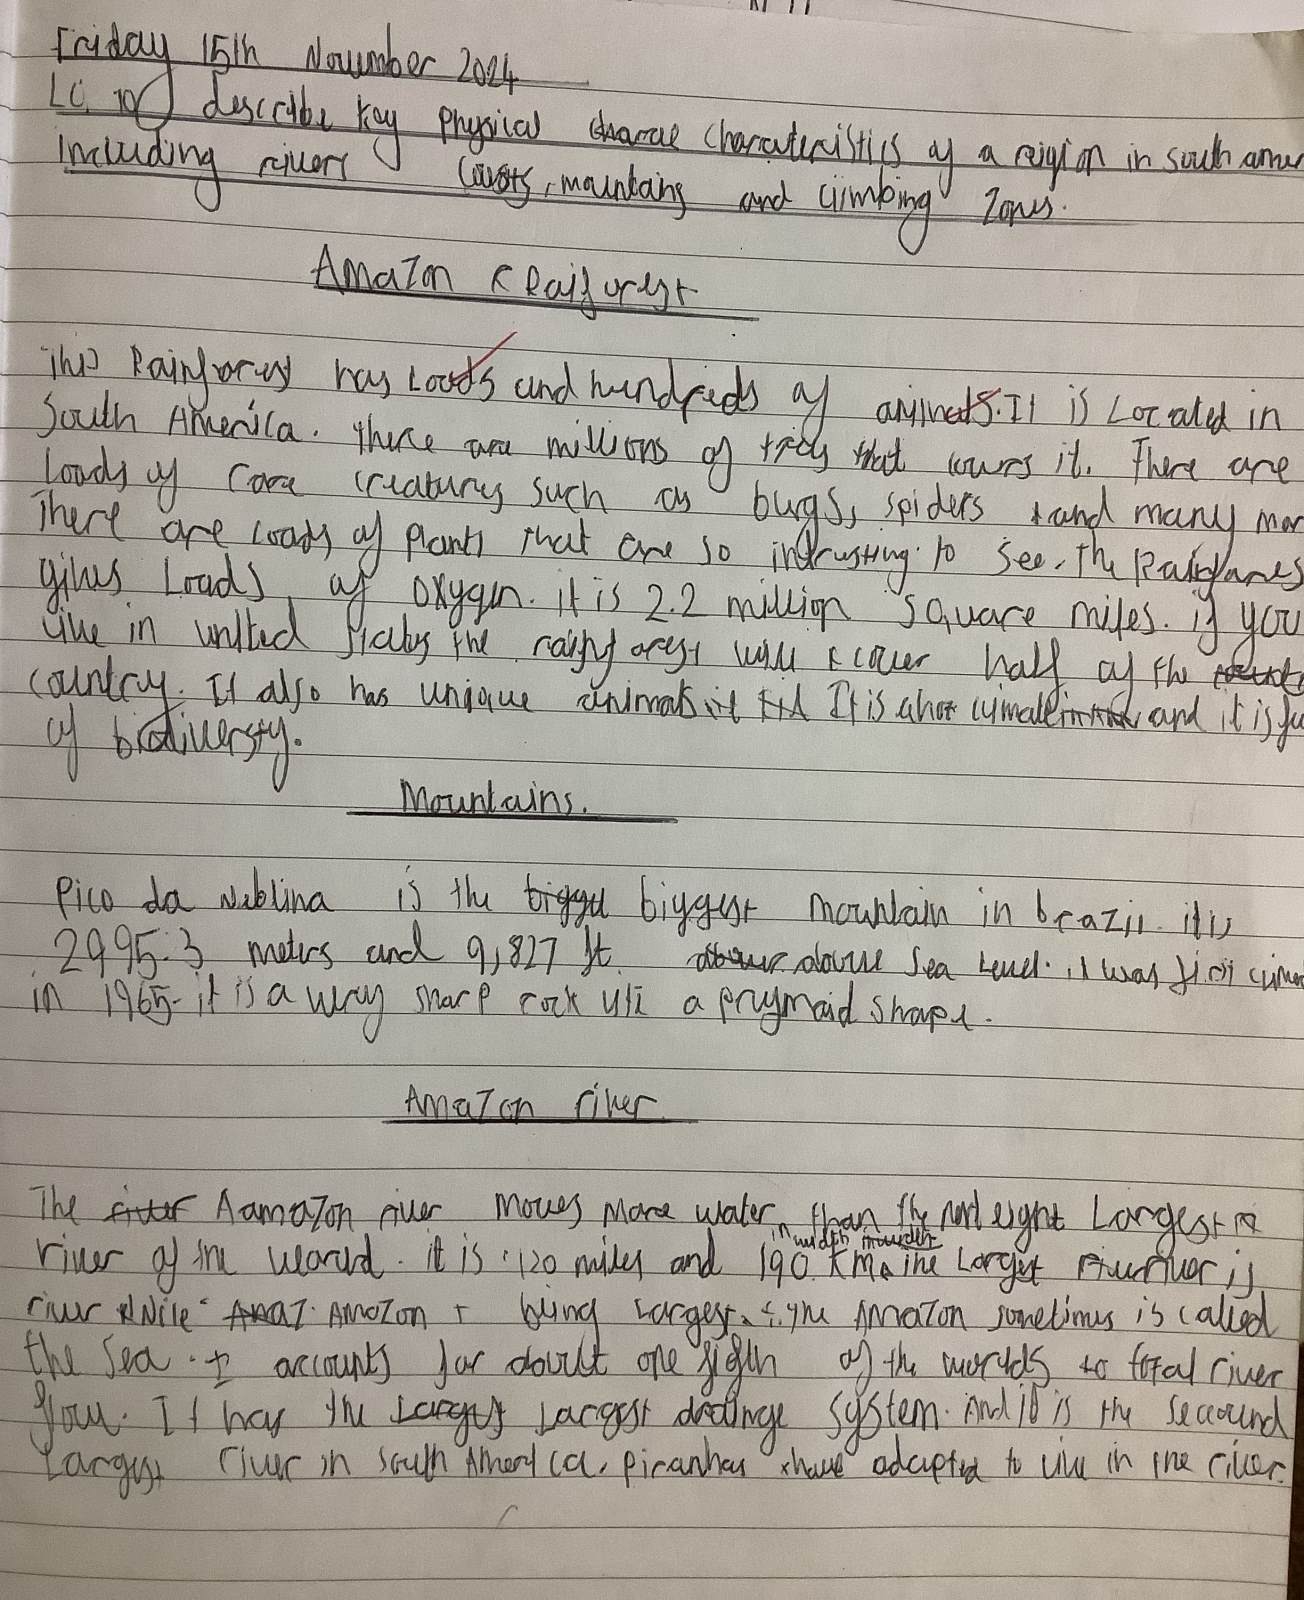 Friday 15th November 2024
LC To describe key physical charac characteristics of a reigion in south amer
Including rivers coasts, mountains and climbing zones.
Amazon Raiforest
This Rainforest has Loads and hundreds of animals. It is Located in
South America. There are millions of trees that covers it. There are
Loads of rare creatures such as bugs, spiders and many mor
There are Loads of Plants that are so intrusting to see. The Rainfores
gives Loads of oxygen. it is 2.2 million square miles. if you
live in united States the rainforest will cover half of the
country. It also has unique animals it It is a hot climate and it is fu
of biodiversty.
Mountains.
Pico da Neblina is the bigge biggest mountain in brazil. it is
2995.3 meters and 9,827 ft. above above sea Level. it was first clim
in 1965. it is a very sharp rock a prymaid shape.
Amazon river
The river Aamazon river moves more water than the next eight Largest
river of the world. it is 120 miles and 190 km in width The Largest river is
river Nile Amaz Amazon being Largest. The Amazon sometimes is called
the Sea. It accounts for about one fifth of the worlds to total river
flow. It has the Largest Largest drainge system. And it is the secound
Largest river in south America. Piranhas have adapted to live in the river.